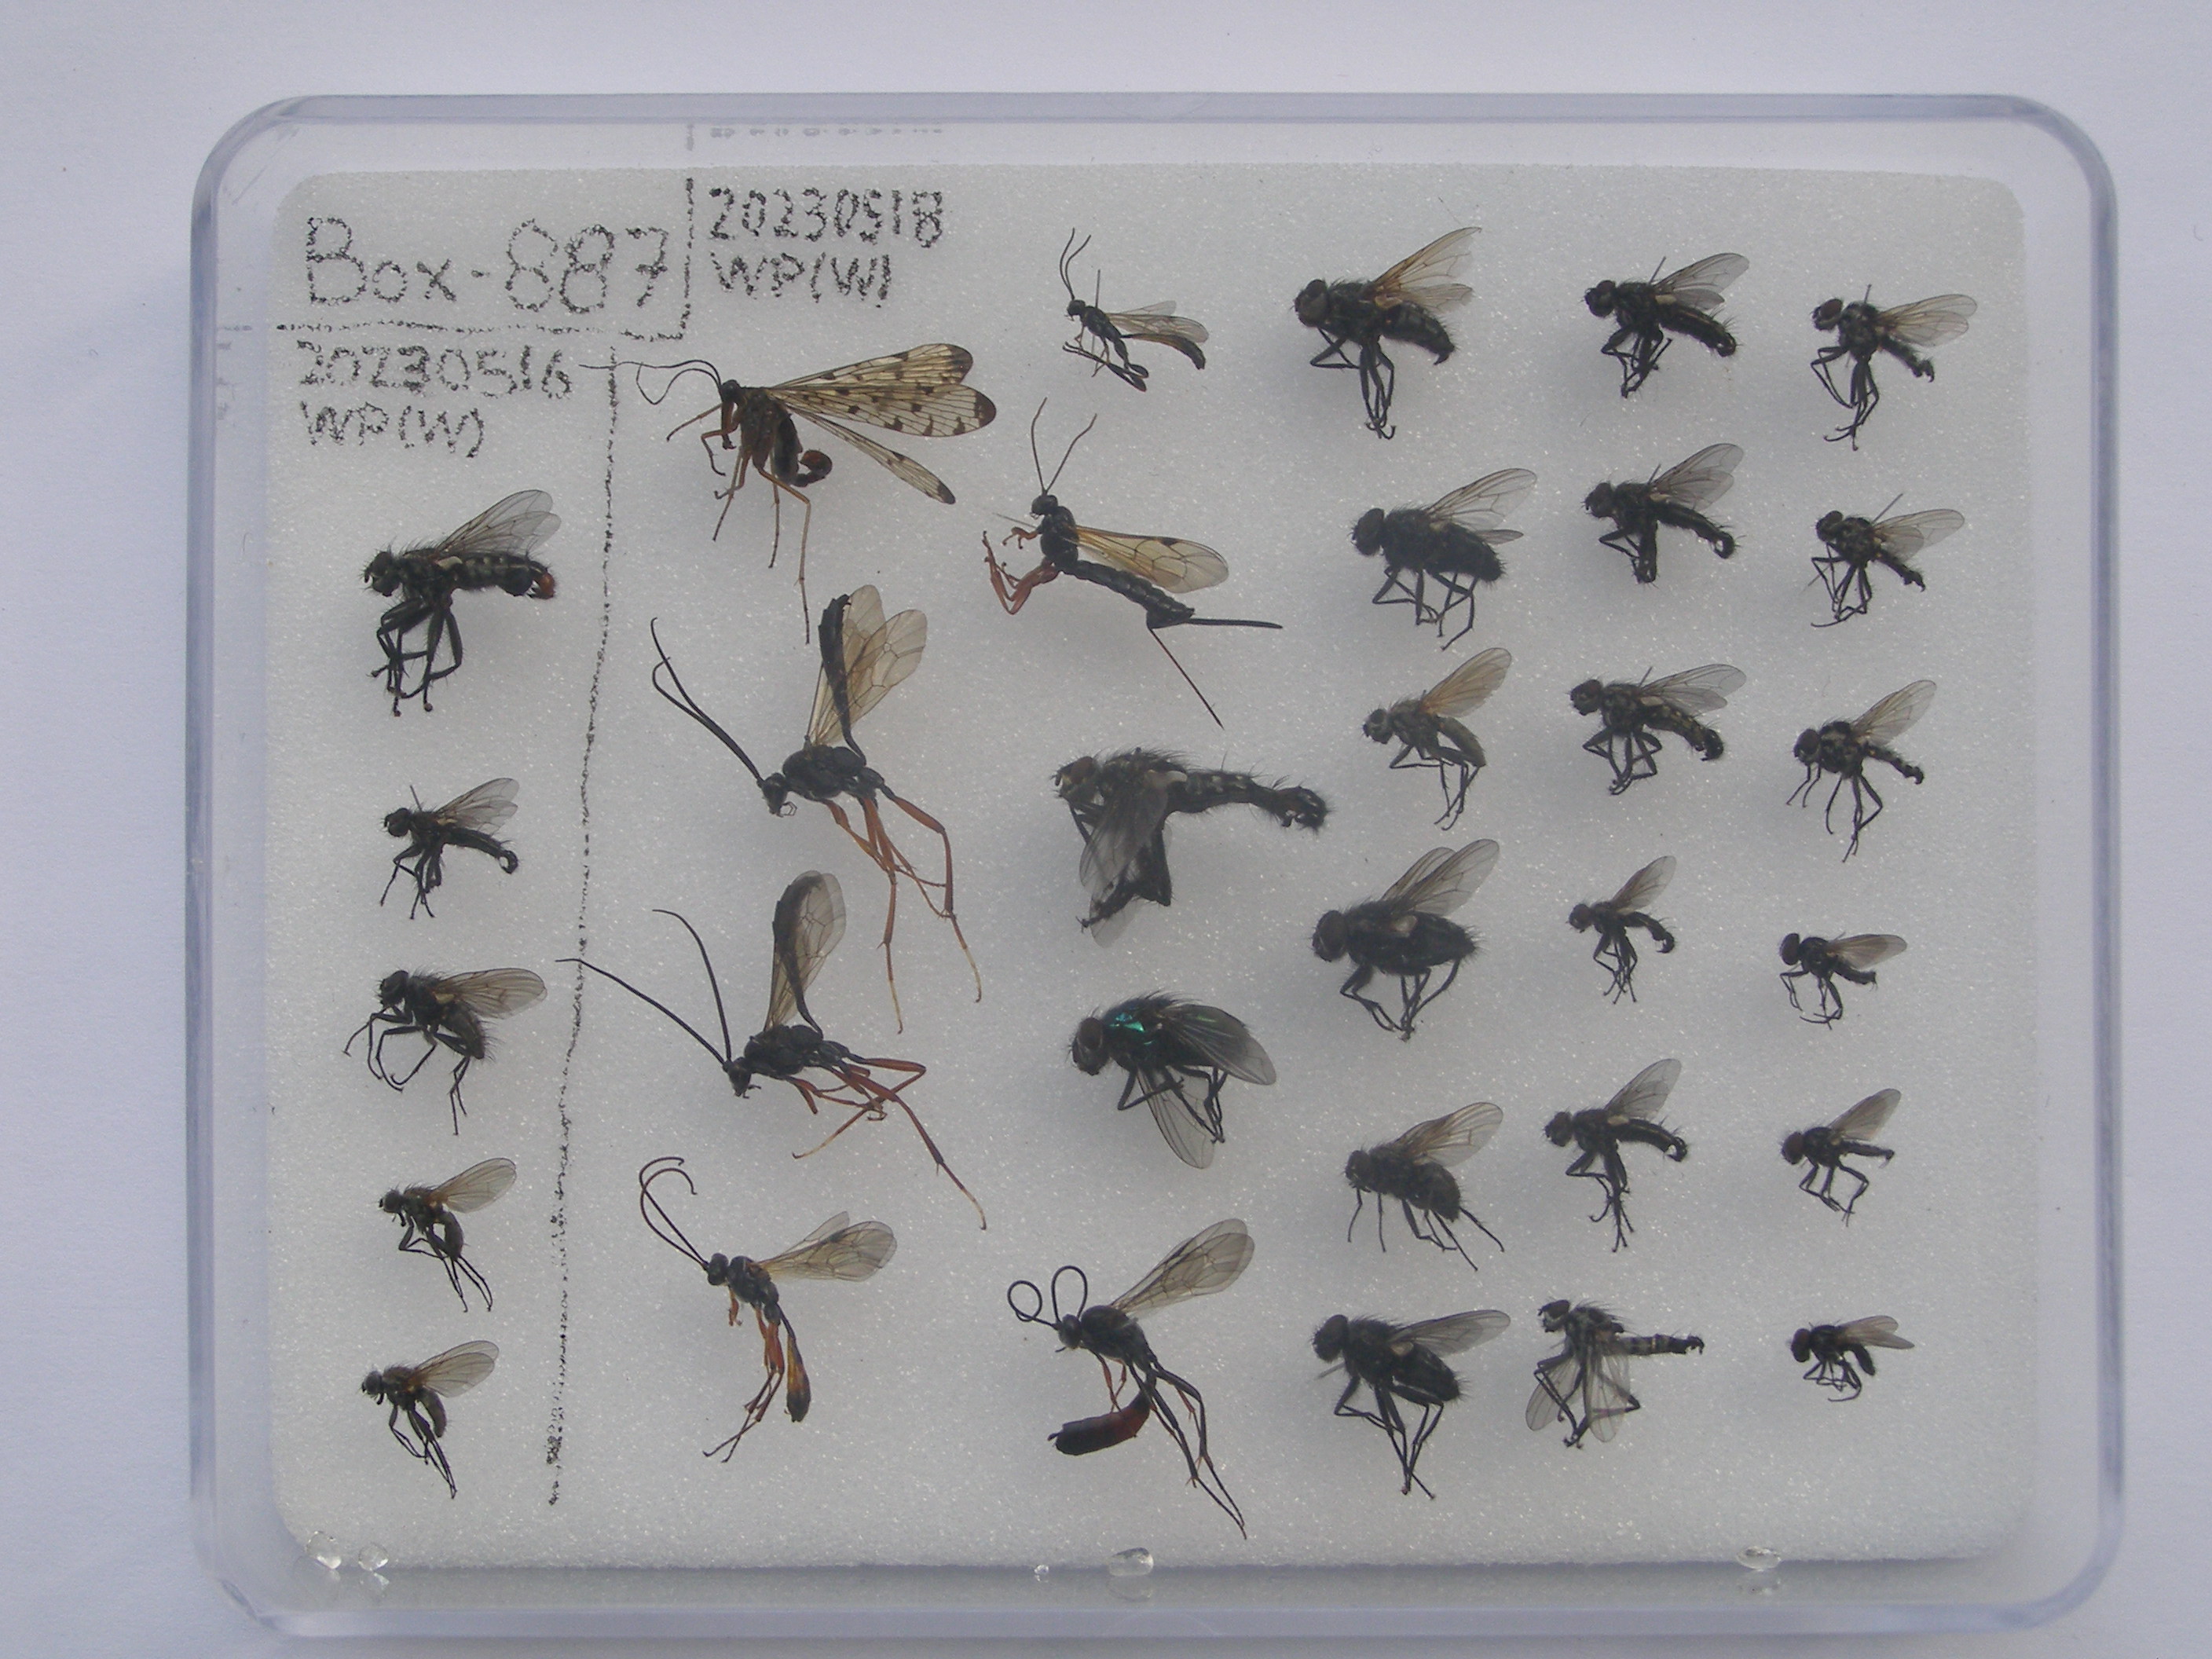 Box-887
20230518
WP(W)
20230516
WP(W)